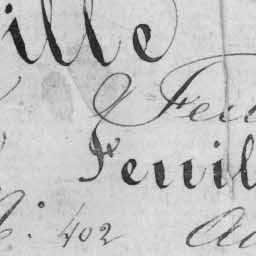 ille
Feu
Feuil
N.º 402 Ad